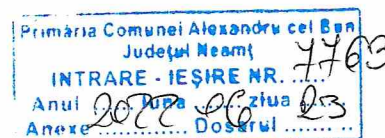 Primăria Comunei Alexandru cel Bun
Județul Neamț
INTRARE - IEȘIRE NR. 7763
Anul 2022 luna 06 ziua 23
Anexe ............ Dosarul ..........